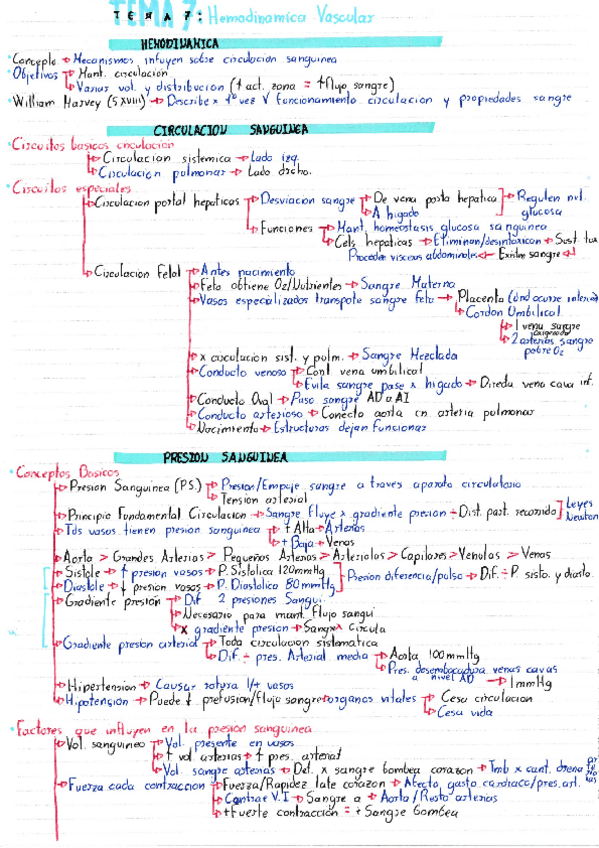 TEMA 7: Hemodinamica Vascular
HEMODINAMICA
Concepto → Mecanismos influyen sobre circulacion sanguinea
Objetivos → Mant. circulacion
→ Varias vol. y distribucion (↑ act. zona = ↑ flujo sangre)
William Harvey (S XVIII) → Describe x 1ª vez V funcionamiento circulacion y propiedades sangre
CIRCULACION SANGUINEA
Circuitos basicos circulacion
→ Circulacion sistemica → Lado izq.
→ Circulacion pulmonar → Lado dscho.
Circuitos especiales
→ Circulacion portal hepaticos → Desviacion sangre → De vena porta hepatica → Regulen nvl.
→ A higado glucosa
→ Funciones → Mant. homeostasis glucosa sanguinea
→ Cels. hepaticas → Eliminan/desintoxican → Sust. tox
Proceden visceras abdominales ← Existe sangre ←
→ Circulacion Fetal → Antes nacimiento
→ Feto obtiene O2/Nutrientes → Sangre Materna
→ Vasos especializados transpote sangre feto → Placenta (dnd ocurre interca)
→ Cordon Umbilical
→ 1 vena sangre
oxigenada
→ 2 arterias sangre
pobre O2
→ x circulacion sist. y pulm. → Sangre Mezclada
→ Conducto venoso → Cont. vena umbilical
→ Evita sangre pase x higado → Directa vena cava inf.
→ Conducto Oval → Paso sangre AD a AI
→ Conducto arterioso → Conecta aorta cn arteria pulmonar
→ Nacimiento → Estructuras dejan funcionar
PRESION SANGUINEA
Conceptos Basicos
→ Presion Sanguinea (P.S.) → Presion/Empuje sangre a traves aparato circulatorio
→ Tension arterial
→ Principio Fundamental Circulacion → Sangre fluye x gradiente presion ÷ Dist. part. recorrido] Leyes
Newton
→ Tds vasos tienen presion sanguinea → + Alta → Arterias
→ + Baja → Venas
→ Aorta > Grandes Arterias > Pequeños Arterias > Arteriolas > Capilares > Venulas > Venas
→ Sistole → ↑ presion vasos → P. Sistolica 120mmHg
→ Diastole → ↓ presion vasos → P. Diastolica 80mmHg] Presion diferencia/pulso → Dif. ÷ P. sisto. y diasto.
→ Gradiente presion → Dif. 2 presiones Sangui.
→ Necesario para mant. flujo sangui
→ X gradiente presion → Sangre X circula
→ Gradiente presion arterial → Toda circulacion sistematica
→ Dif. ÷ pres. Arterial media → Aorta 100mmHg
→ Pres. desembocadura venas cavas
a nivel AD → 1mmHg
→ Hipertension → Causar rotura 1/+ vasos
→ Hipotension → Puede ↓ prefusion/flujo sangre organos vitales → Cesa circulacion
→ Cesa vida
Factores que influyen en la presion sanguinea
→ Vol. sanguineo → Vol. presente en vasos
→ ↑ vol arterias → ↑ pres. arterial
→ Vol. sangre arterias → Det. x sangre bombea corazon → Tmb x cant. drena
→ Fuerza cada contraccion → Fuerza/Rapidez late corazon → Afecta gasto cardiaco/pres. art.
→ Contrae V.I → Sangre a → Aorta/Resto arterias
→ + Fuerte contraccion = + Sangre bombea